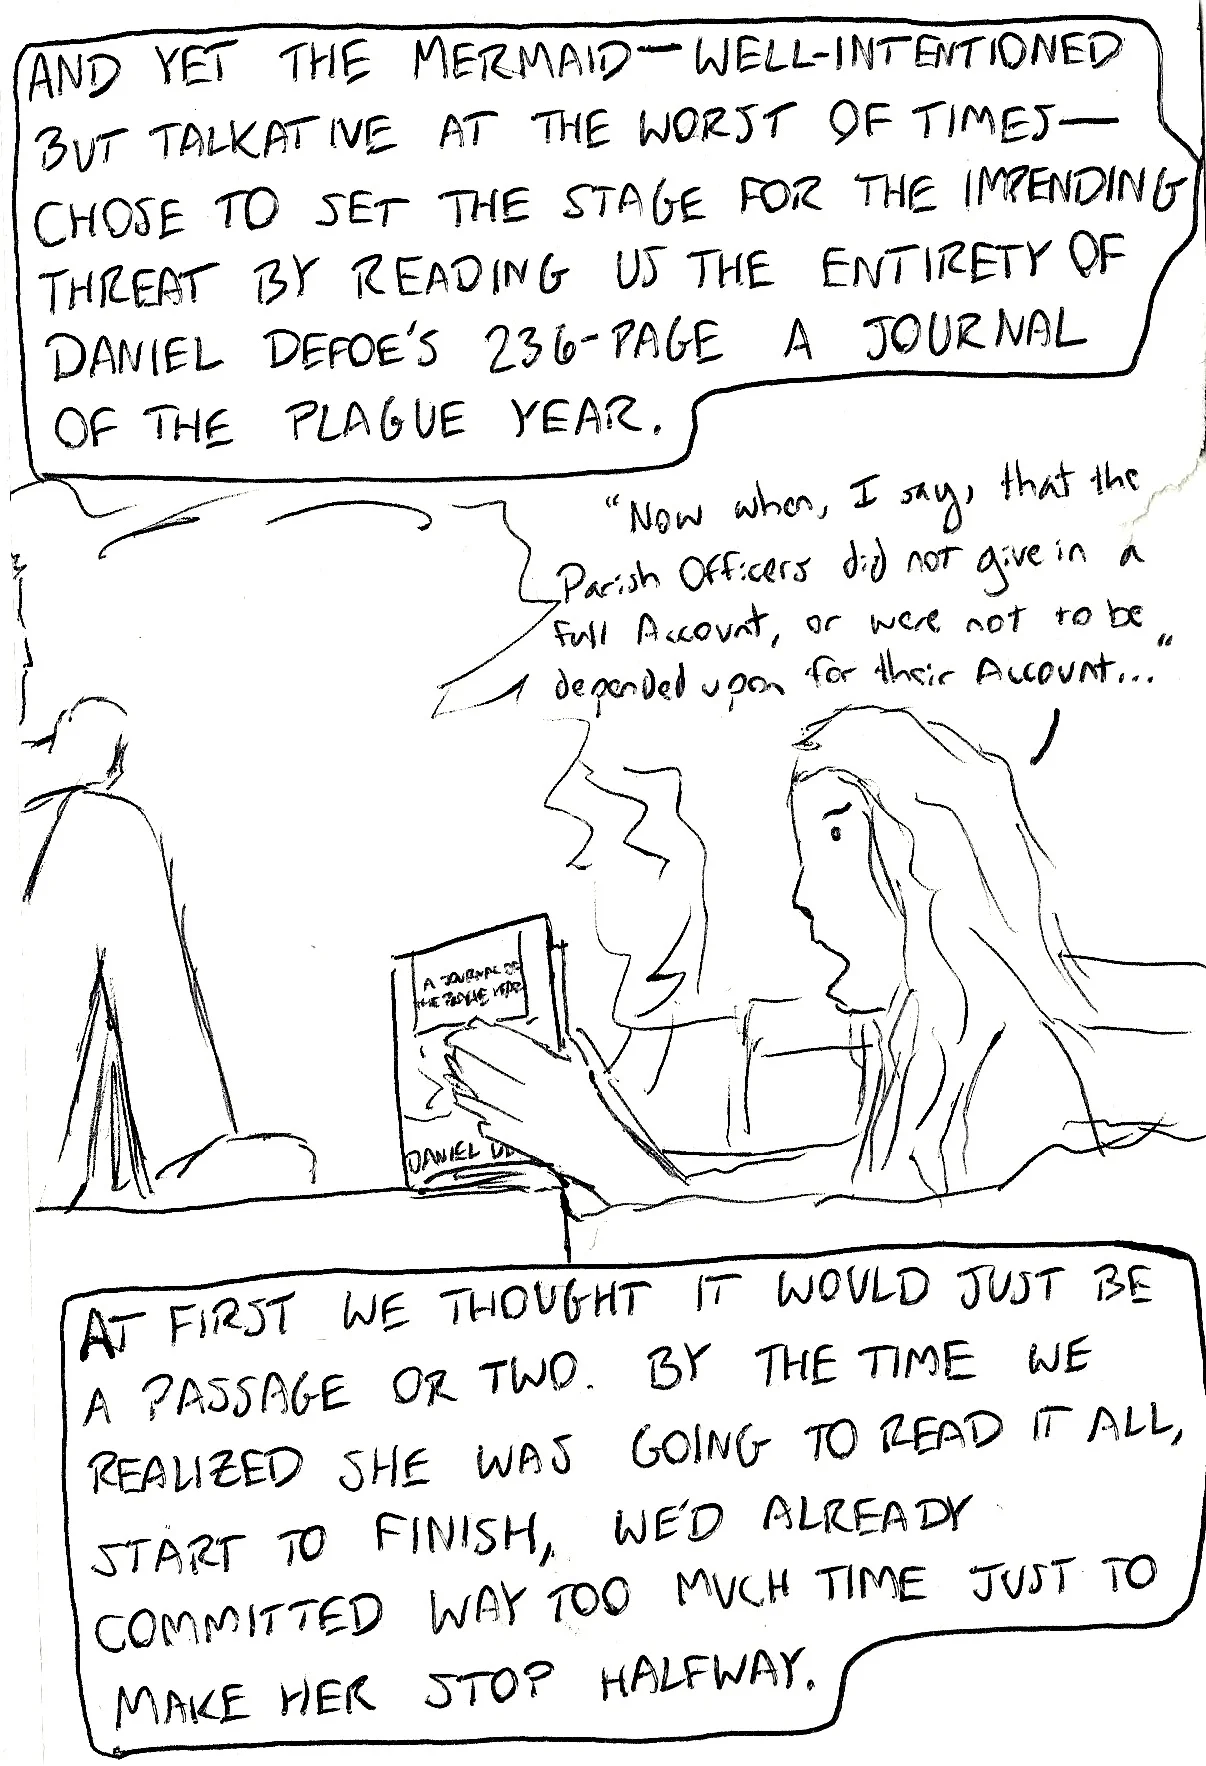 AND YET THE MERMAID—WELL-INTENTIONED
BUT TALKATIVE AT THE WORST OF TIMES—
CHOSE TO SET THE STAGE FOR THE IMPENDING
THREAT BY READING US THE ENTIRETY OF
DANIEL DEFOE'S 236-PAGE A JOURNAL
OF THE PLAGUE YEAR.
"Now when, I say, that the
Parish Officers did not give in a
full Account, or were not to be
depended upon for their Account..."
A JOURNAL OF
THE PLAGUE YEAR
DANIEL DE
AT FIRST WE THOUGHT IT WOULD JUST BE
A PASSAGE OR TWO. BY THE TIME WE
REALIZED SHE WAS GOING TO READ IT ALL,
START TO FINISH, WE'D ALREADY
COMMITTED WAY TOO MUCH TIME JUST TO
MAKE HER STOP HALFWAY.